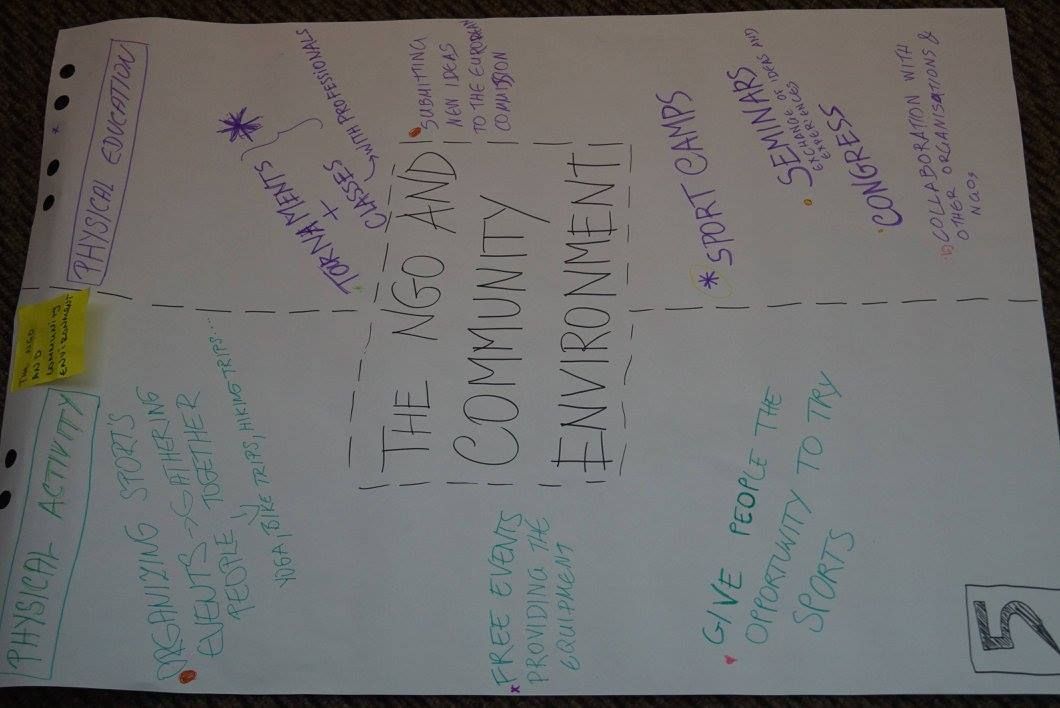 PHYSICAL ACTIVITY
THE NGO
AND
COMMUNITY
ENVIRONMENT
PHYSICAL EDUCATION
ORGANIZING SPORT'S
EVENTS → GATHERING
PEOPLE TOGETHER
YOGA, BIKE TRIPS, HIKING TRIPS...
* TORNAMENTS
+
CLASSES
WITH PROFESSIONALS
SUBMITTING
NEW IDEAS
TO THE EUROPEAN
COMMISION
THE NGO AND
COMMUNITY
ENVIRONMENT
x FREE EVENTS
PROVIDING THE
EQUIPMENT
GIVE PEOPLE THE
OPPORTUNITY TO TRY
SPORTS
* SPORT CAMPS
SEMINARS
EXCHANGE OF IDEAS AND
EXPERIENCES
CONGRESS
COLLABORATION WITH
OTHER ORGANISATIONS &
NGOs
5